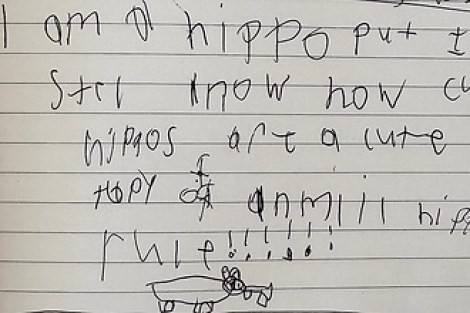 I am a hippo put I
Stil know how cu
hippos are a cute
tipy of anmill hipp
rule!!!!!!!